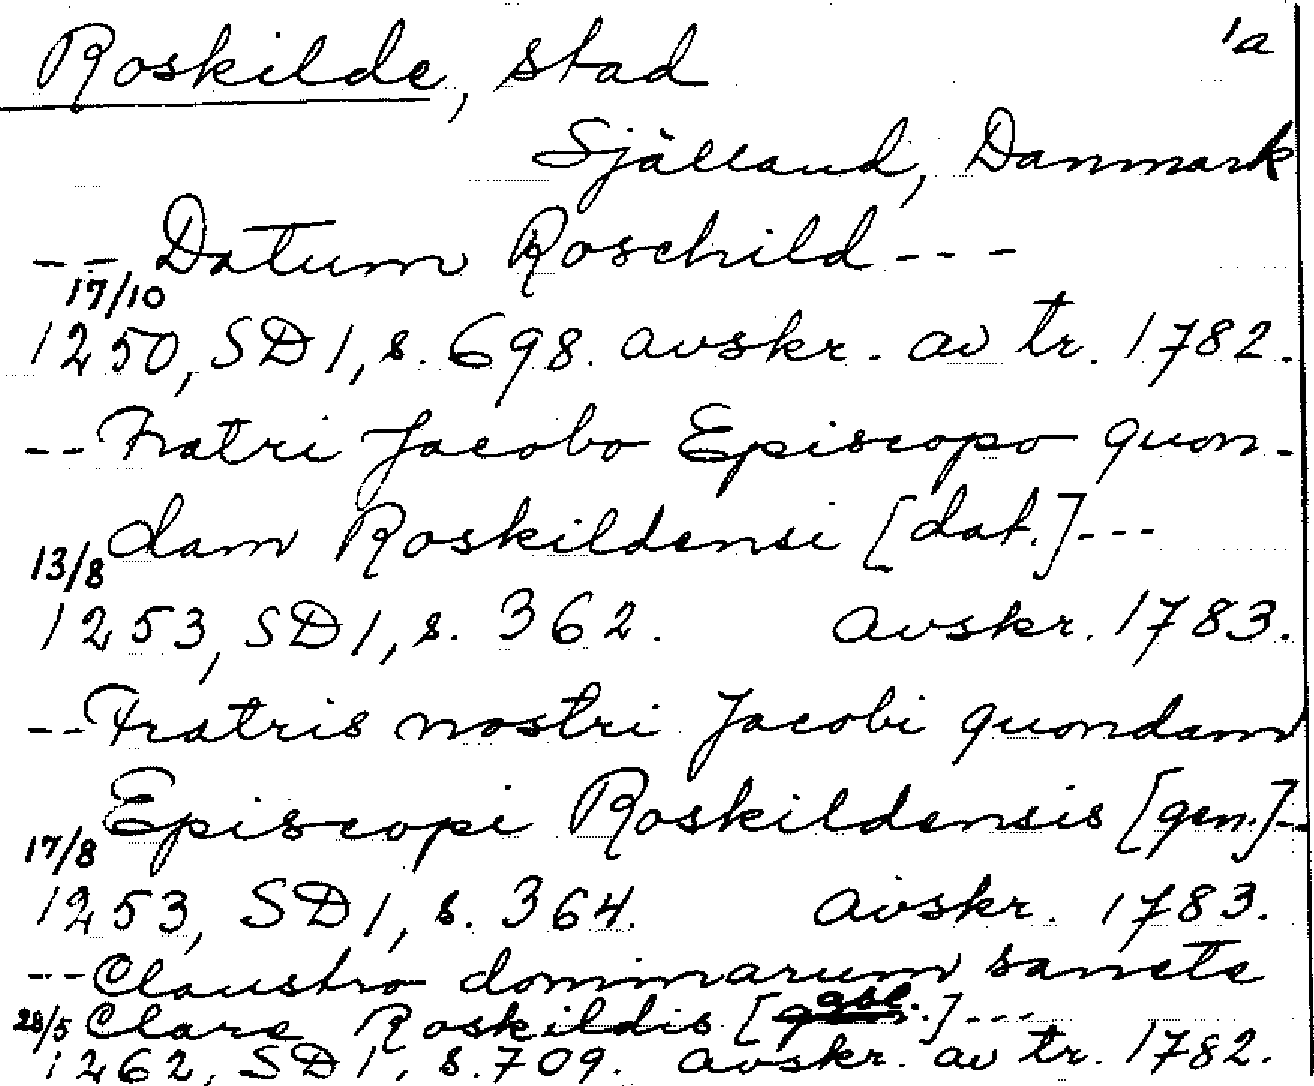 Roskilde, stad 1a
Själland, Danmark
-- Datum Roschild ---
17/10
1250, SD 1, s. 698. avskr. av tr. 1782.
-- Fratri Jacobo Episcopo quon-
dam Roskildensi [dat.] ---
13/8
1253, SD 1, s. 362. avskr. 1783.
-- Fratris nostri Jacobi quondam
Episcopi Roskildensis [gen.] --
17/8
1253, SD 1, s. 364. avskr. 1783.
-- Claustro dominarum sancte
28/5 Clare Roskildis [abl.] ---
1262, SD 1, s. 709. avskr. av tr. 1782.